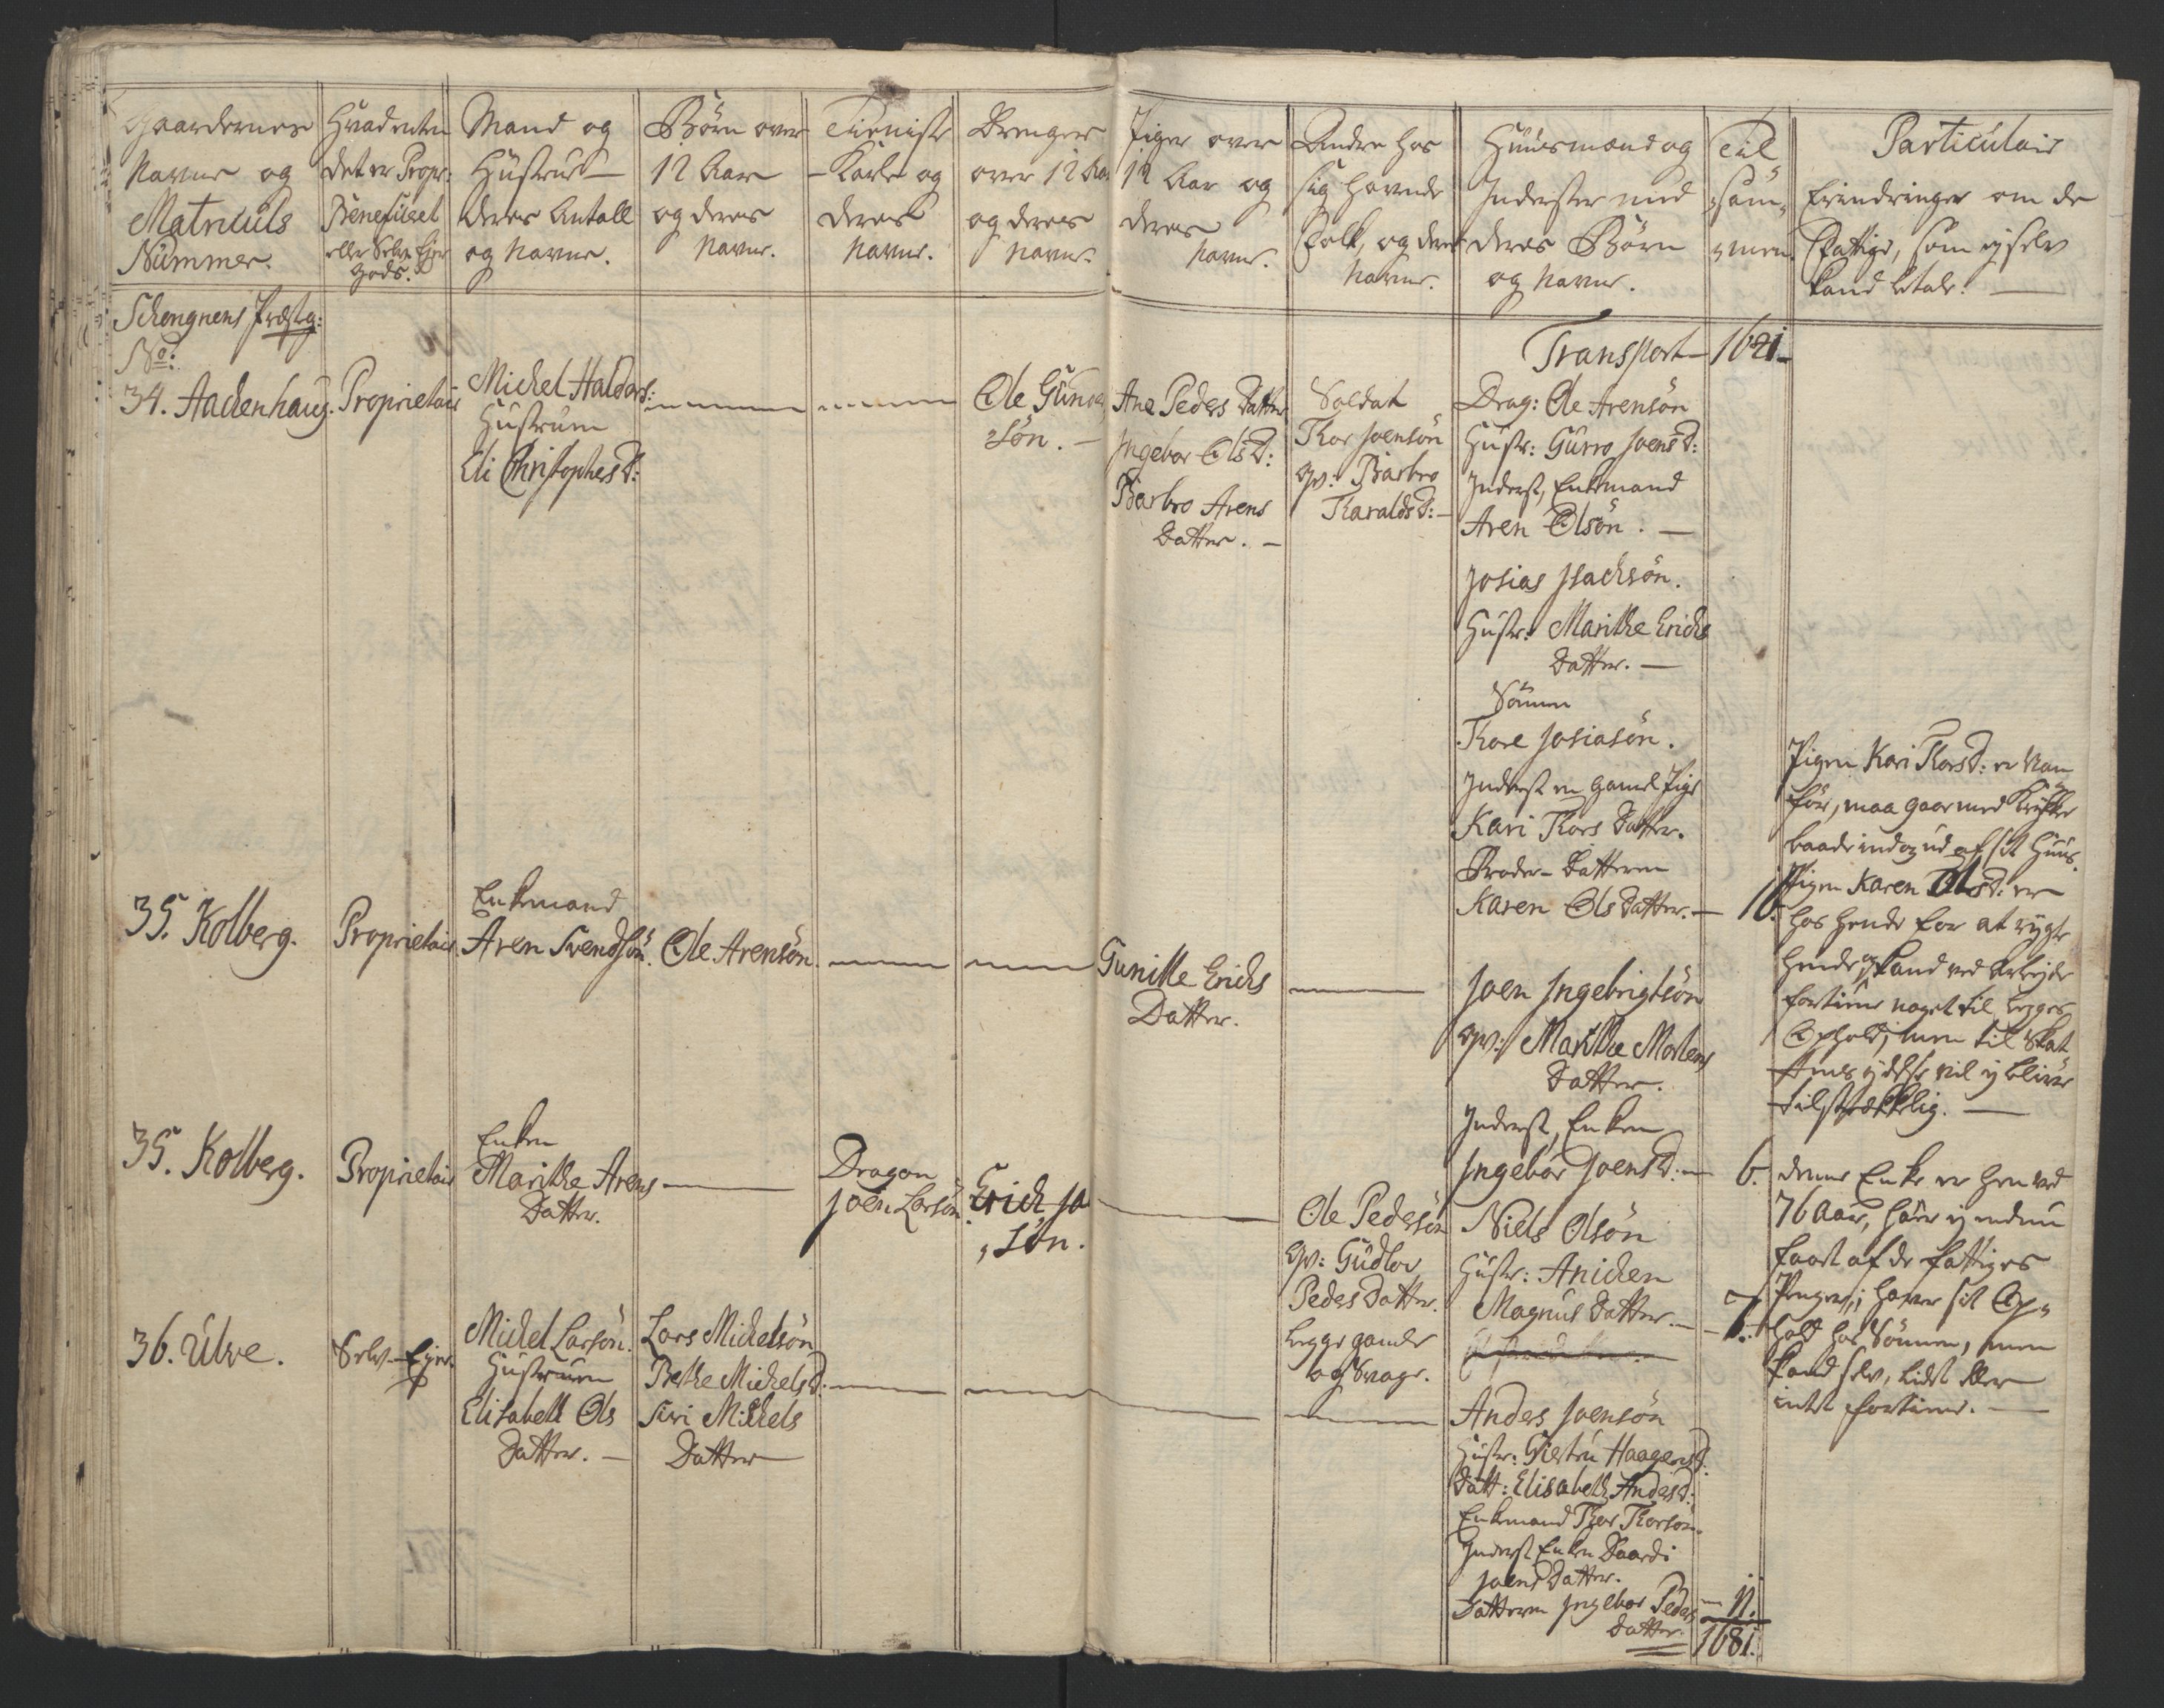 Gaardernes
Navne og
Matriculs
Nummer.
Hvad enten
det er Propr:
Beneficeret
eller Selv Ejer
gods.
Mand og
Hustrue
deres Antall
og Navne.
Børn over
12 Aar
og deres
Navne.
Tieniste
Karle og
deres
Navne.
Drenge
over 12 Aar
og deres
Navne.
Piger over
12 Aar og
deres
Navne.
Andre hos
sig havende
Folk, og deres
Navne.
Huusmænd og
Inderster med
deres Børn
og Navne.
Til
sam,
men.
Particulair
Erindringer om de
Fattige, som ej selv
kand betale. —
Schongnens Præstg:
No:
Transport — 1621
34. Aachenhaug.
Proprietair
Michel Haldors:
Hustruen
Eli Christophersd:
Ole Gunder
søn. —
Ane Peders Datter
Ingebor Olsd:
Barbro Arens
Datter. —
Soldat
Thor Joensøn
qv: Barbro
Haraldsd: —
Drag: Ole Arensøn
Hustr: Gurro Joensd:
Inderst, Enkemand
Aren Olsøn. —
Josias Isachsøn.
Hustr: Marithe Erichs
Datter. —
Sønnen
Thore Josiasøn.
Inderst en gamel Pige
Kari Thors Datter.
Broder-Datteren
Karen Ols Datter. — 16.
Pigen Kari Thorsd: er Van
før, maa gaae med Krykke
baade ind og ud af sit Huus.
Pigen Karen Olsd: er
hos hende for at rygte
hende og kand ved Arbejde
fortiene noget til begges
Ophold; men til Skat
tens ydelse vil ej blive
tilstrekkelig. —
35. Kolberg.
Proprietair
Enkemand
Aren Svendsøn.
Ole Arensøn.
Gunille Erichs
Datter.
Joen Ingebrigtsøn
qv: Marithe Mortens
Datter.
Inderst, Enken
Ingebor Joensd: — 6.
35. Kolberg.
Proprietair
Enken
Marithe Arens
Datter.
Dragon
Joen Larsøn.
Erich Jo
søn.
Ole Pedersøn
qv: Gudlov
Peders Datter.
begge gamle
og svage.
Niels Olsøn
Hustr: Anichen
Magnus Datter. — 7.
denne Enke er hen ved
76 Aar, har ej endnu
faaet af de fattiges
Penge; haver sit Op,
hold hos Sønnen, men
kand selv, lidet eller
intet fortiene. —
36. Ulve.
Selv-Ejer.
Michel Larsøn.
Hustruen
Elisabeth Ols
Datter. —
Lars Michelsøn
Berthe Michelsd:
Siri Michels
Datter
Anders Joensøn
Hustr: Giertru Haagensd:
Datt: Elisabeth Andersd:
Enkemand Thor Thorsøn.
Inderst Enken Baardi
Joens Datter.
Datteren Ingebor Peders
Datter. — 11.
1681.